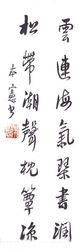 雲連海氣琴書潤
松帶潮聲枕簟涼